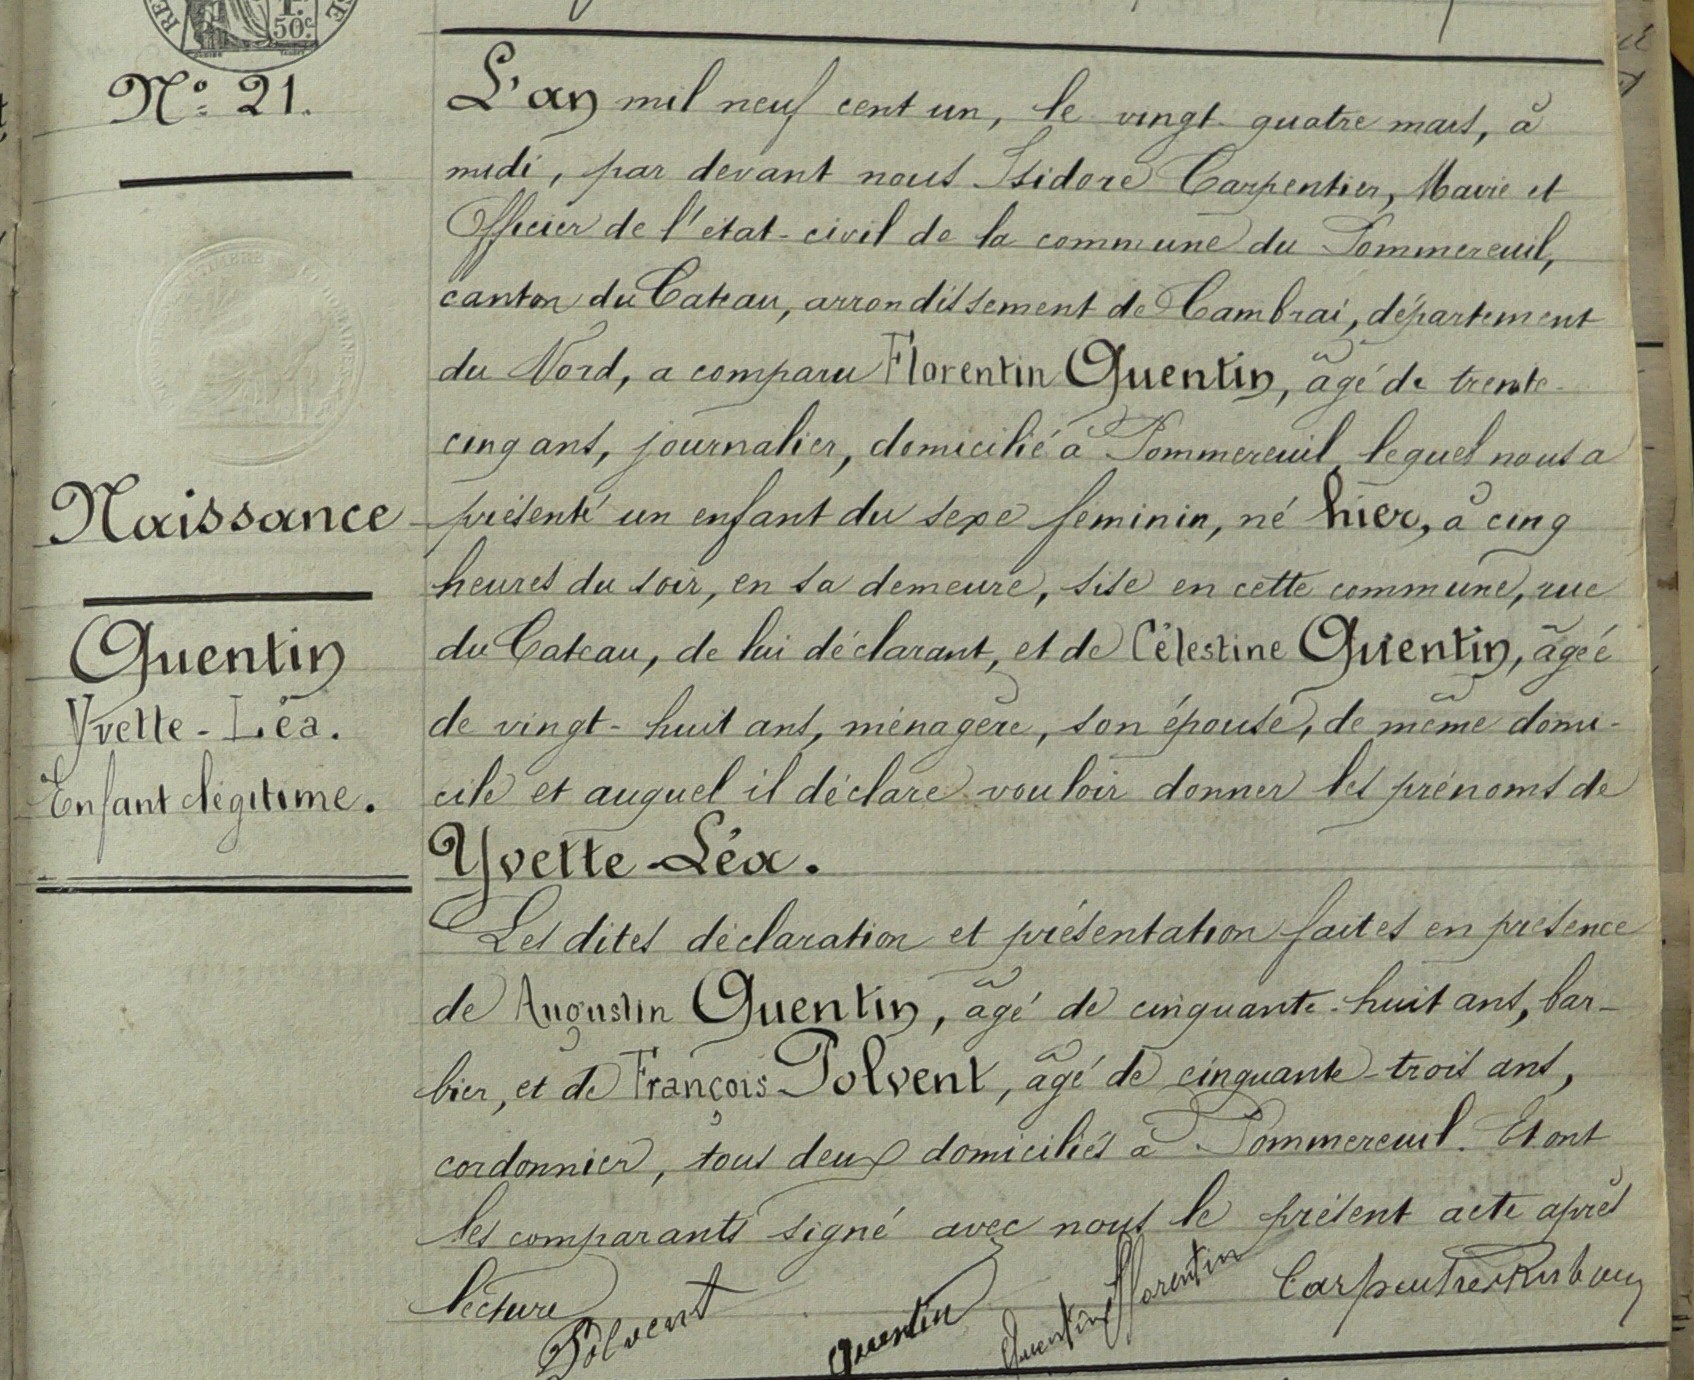 50c
N° 21.
Naissance
Quentin
Yvette-Léa.
Enfant légitime.
L'an mil neuf cent un, le vingt-quatre mars, à
midi, par devant nous Isidore Carpentier, Maire et
Officier de l'état-civil de la commune du Pommereuil,
canton du Cateau, arrondissement de Cambrai, département
du Nord, a comparu Florentin Quentin, âgé de trente-
cinq ans, journalier, domicilié à Pommereuil lequel nous a
présenté un enfant du sexe féminin, né hier, à cinq
heures du soir, en sa demeure, sise en cette commune, rue
du Cateau, de lui déclarant, et de Célestine Quentin, âgée
de vingt-huit ans, ménagère, son épouse, de même domi-
cile et auquel il déclare vouloir donner les prénoms de
Yvette-Léa.
Les dites déclaration et présentation faites en présence
de Augustin Quentin, âgé de cinquante-huit ans, bar-
bier, et de François Polvent, âgé de cinquante-trois ans,
cordonnier, tous deux domiciliés à Pommereuil. Et ont
les comparants signé avec nous le présent acte après
lecture
Polvent Quentin Quentin Florentin